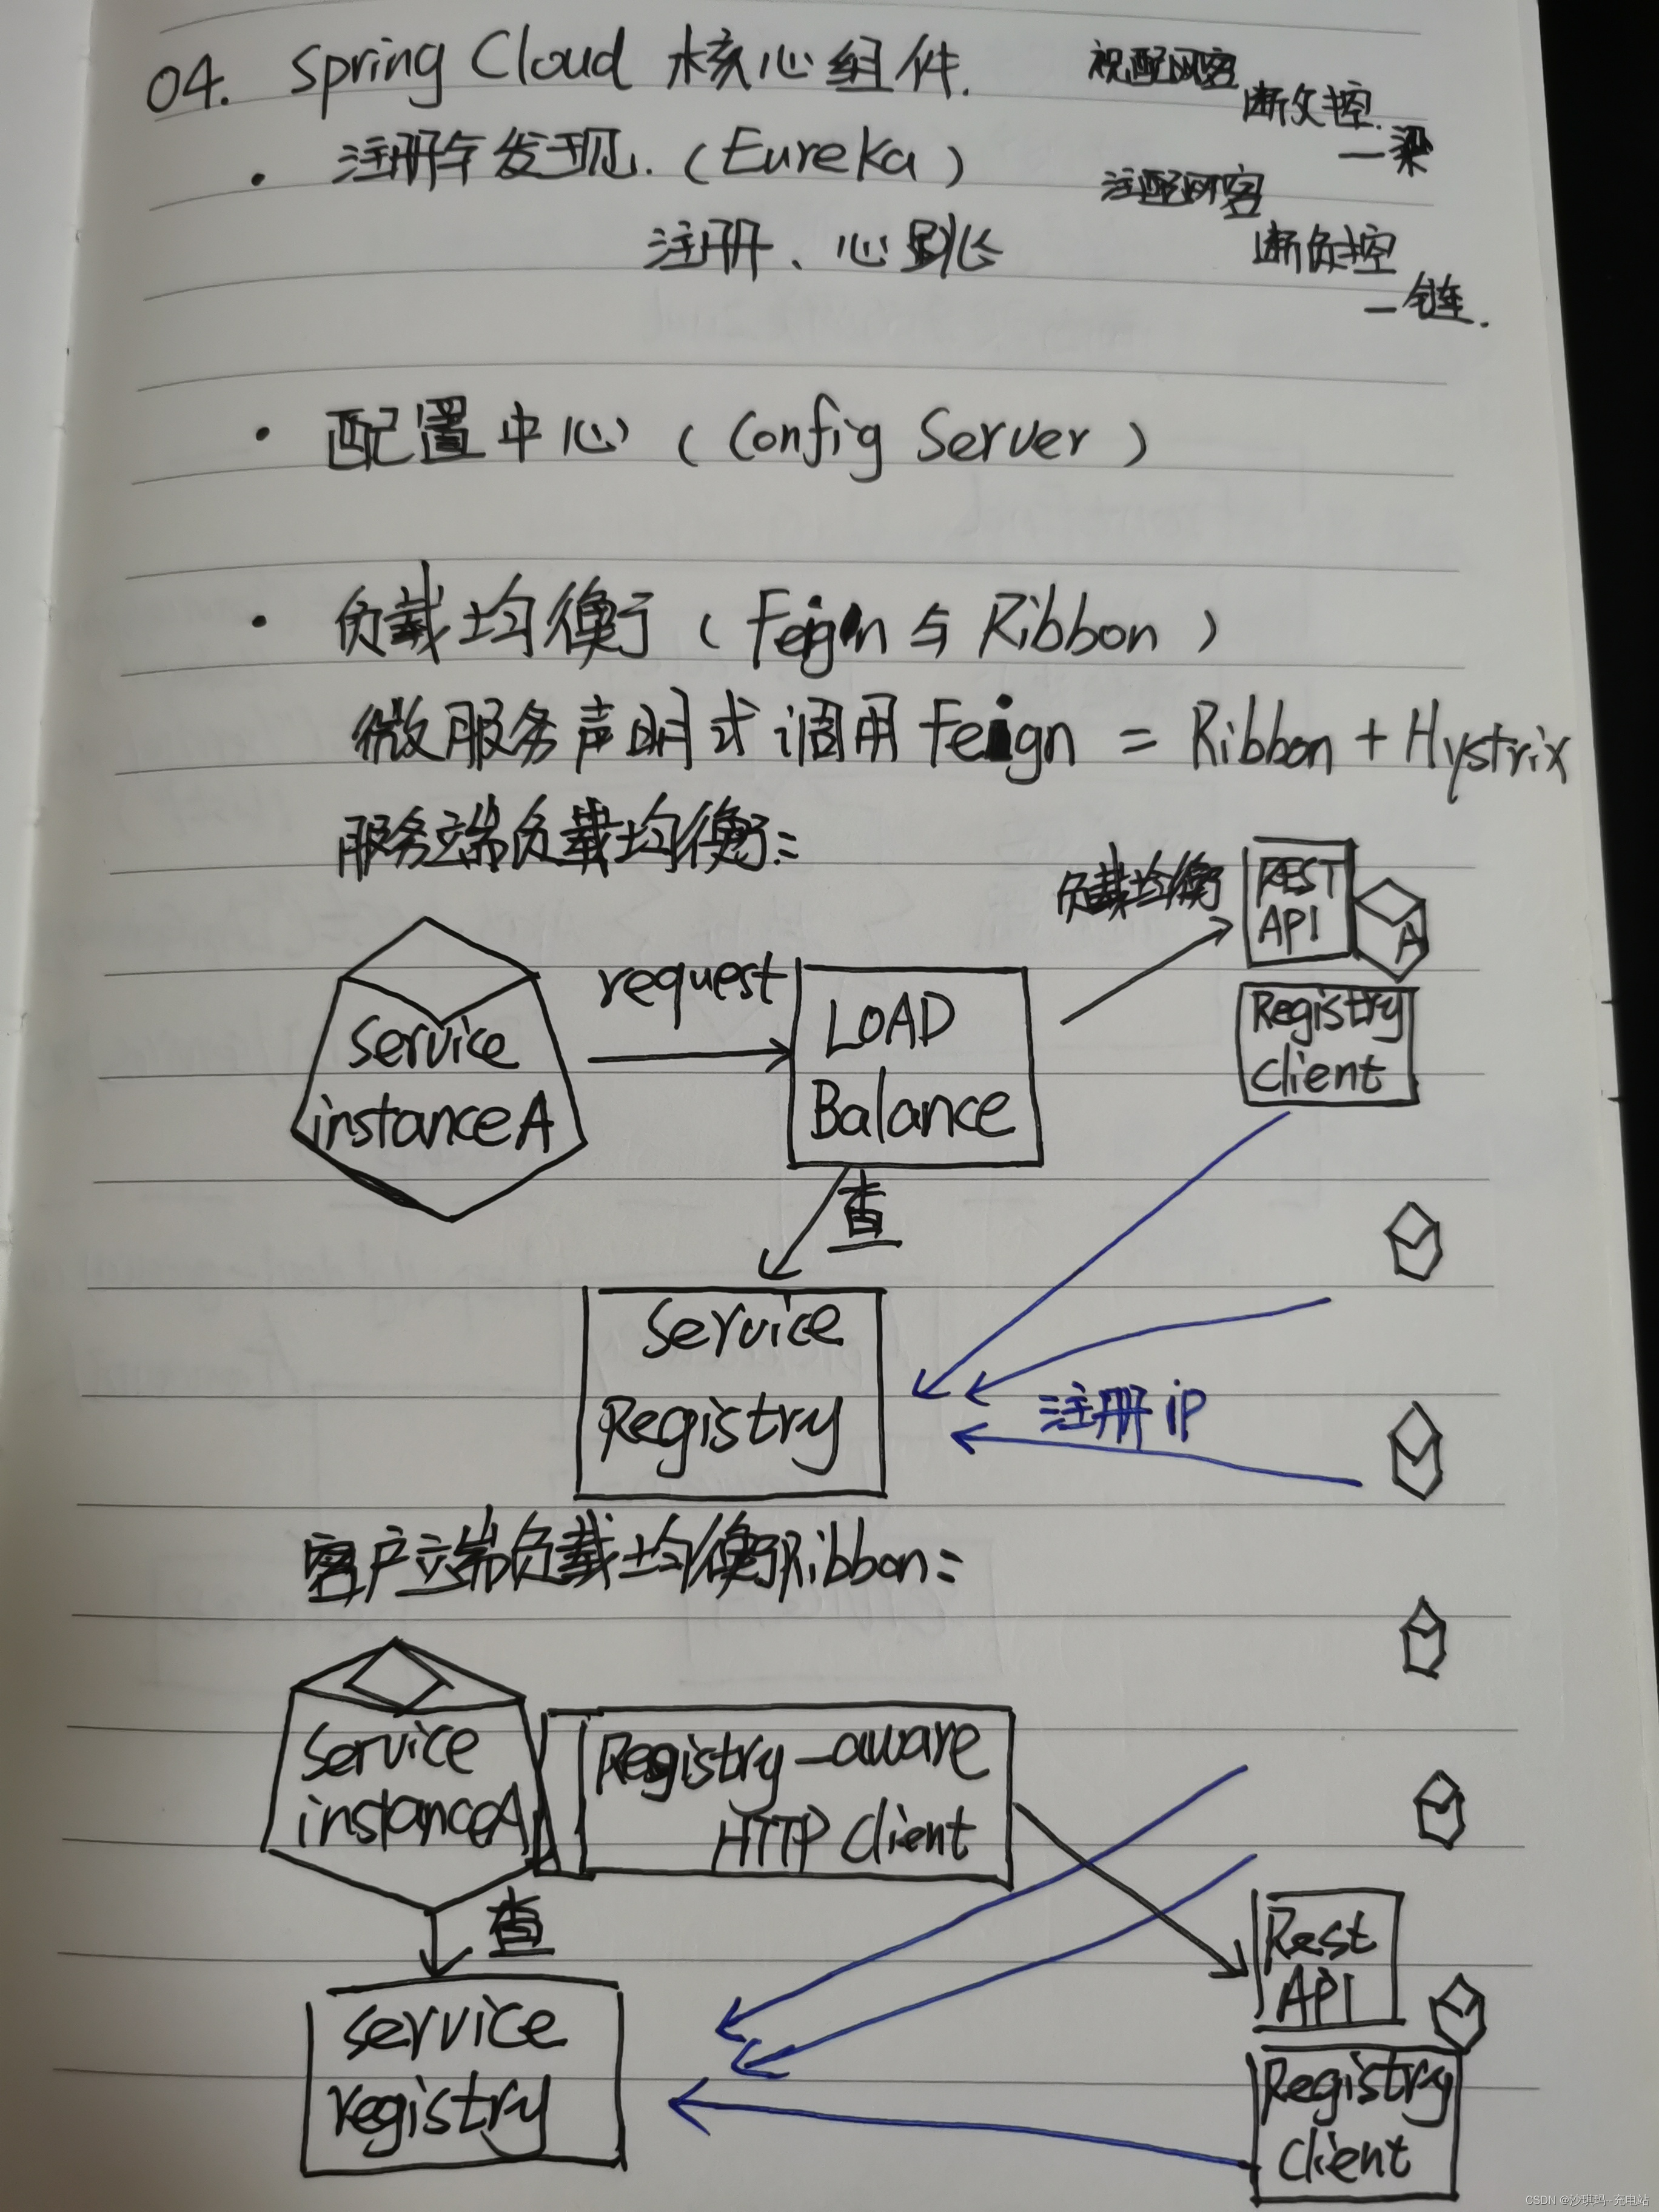 04. Spring Cloud 核心组件.
祝配网客
断欠控
一梁
· 注册与发现.(Eureka)
注配网客
断负控
一链.
注册、心跳
· 配置中心(Config Server)
· 负载均衡(Feign与Ribbon)
微服务声明式调用Feign = Ribbon + Hystrix
服务端负载均衡:
负载均衡
REST
API
A
request
LOAD
Balance
Registry
Client
Service
instanceA
查
Service
Registry
注册ip
客户端负载均衡Ribbon:
Service
instanceA
Registry-aware
HTTP Client
查
Rest
API
service
registry
Registry
Client
CSDN @沙琪玛-充电站